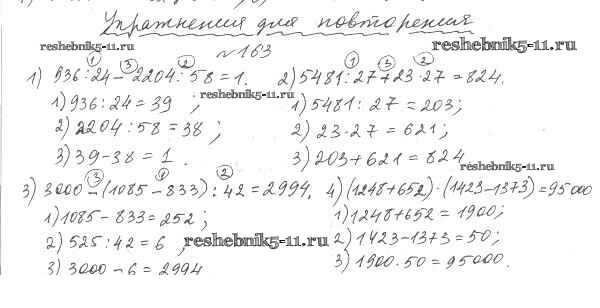 Упражнения для повторения
reshebnik5-11.ru
reshebnik5-11.ru
№163
1) 936:24-2204:58=1. 2) 5481:27+23·27=824.
1) 936:24=39 ; reshebnik5-11.ru 1) 5481:27=203;
2) 2204:58=38 ; 2) 23·27=621;
3) 39-38=1. 3) 203+621=824
reshebnik5-11.ru
3) 3000-(1085-833):42=2994. 4) (1248+652)·(1423-1373)=95000
1) 1085-833=252; 1) 1248+652=1900;
2) 525:42=6 ; reshebnik5-11.ru 2) 1423-1373=50;
3) 3000-6=2994 3) 1900·50=95000.